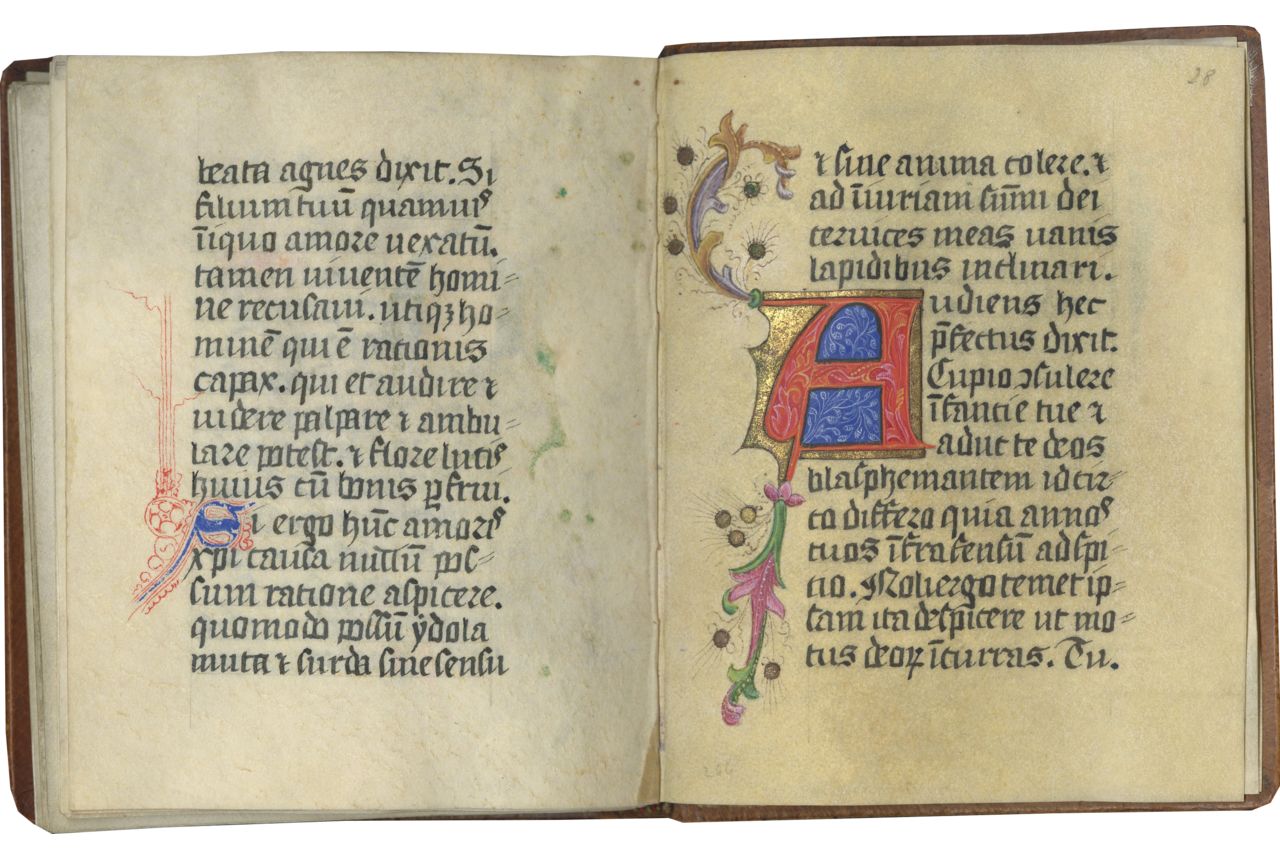 beata agnes dixit. Si
filium tuū quamuis
īiquo amore uexatū.
tamen uiuentē homi=
ne recusaui. utiqꝫ ho=
minē qui ē rationis
capax. qui et audire ⁊
uidere palpare ⁊ ambu=
lare potest. ⁊ flore lucis
huius cū bonis ꝑfrui.
Si ergo hūc amoris
xpi causa nullū pos=
sum ratione aspicere.
quomodo possū ẏdola
muta ⁊ surda sine sensu
28
⁊ sine anima colere. ⁊
ad īiuriam sūmi dei
ceruices meas uanis
lapidibus inclinari.
Audiens hec
p̄fectus dixit.
Cupio ↄsulere
īfantie tue ⁊
aduc te deos
blasphemantem idcir=
co differo quia annos
tuos īfra sensū aspi=
cio. Noli ergo temet ip=
sam ita despicere ut mo=
tus deoꝝ īcurras. Tu.
266